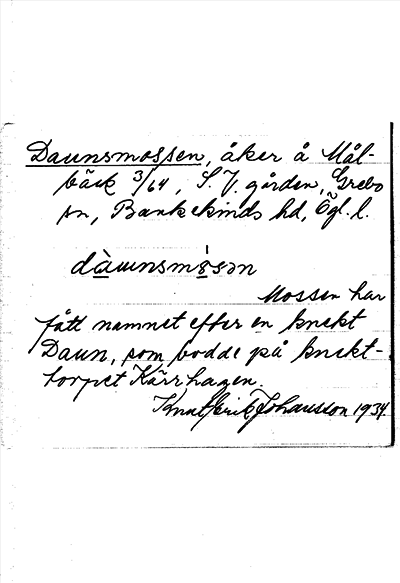 Daunsmossen, åker å Mål-
bäck 3/64, S. V. gården, Grebo
sn, Bankekinds hd, Ögl. l.
dàunsmósən
Mossen har
fått namnet efter en knekt
Daun, som bodde på knekt-
torpet Kärrhagen.
Knut Erik Johansson 1934.